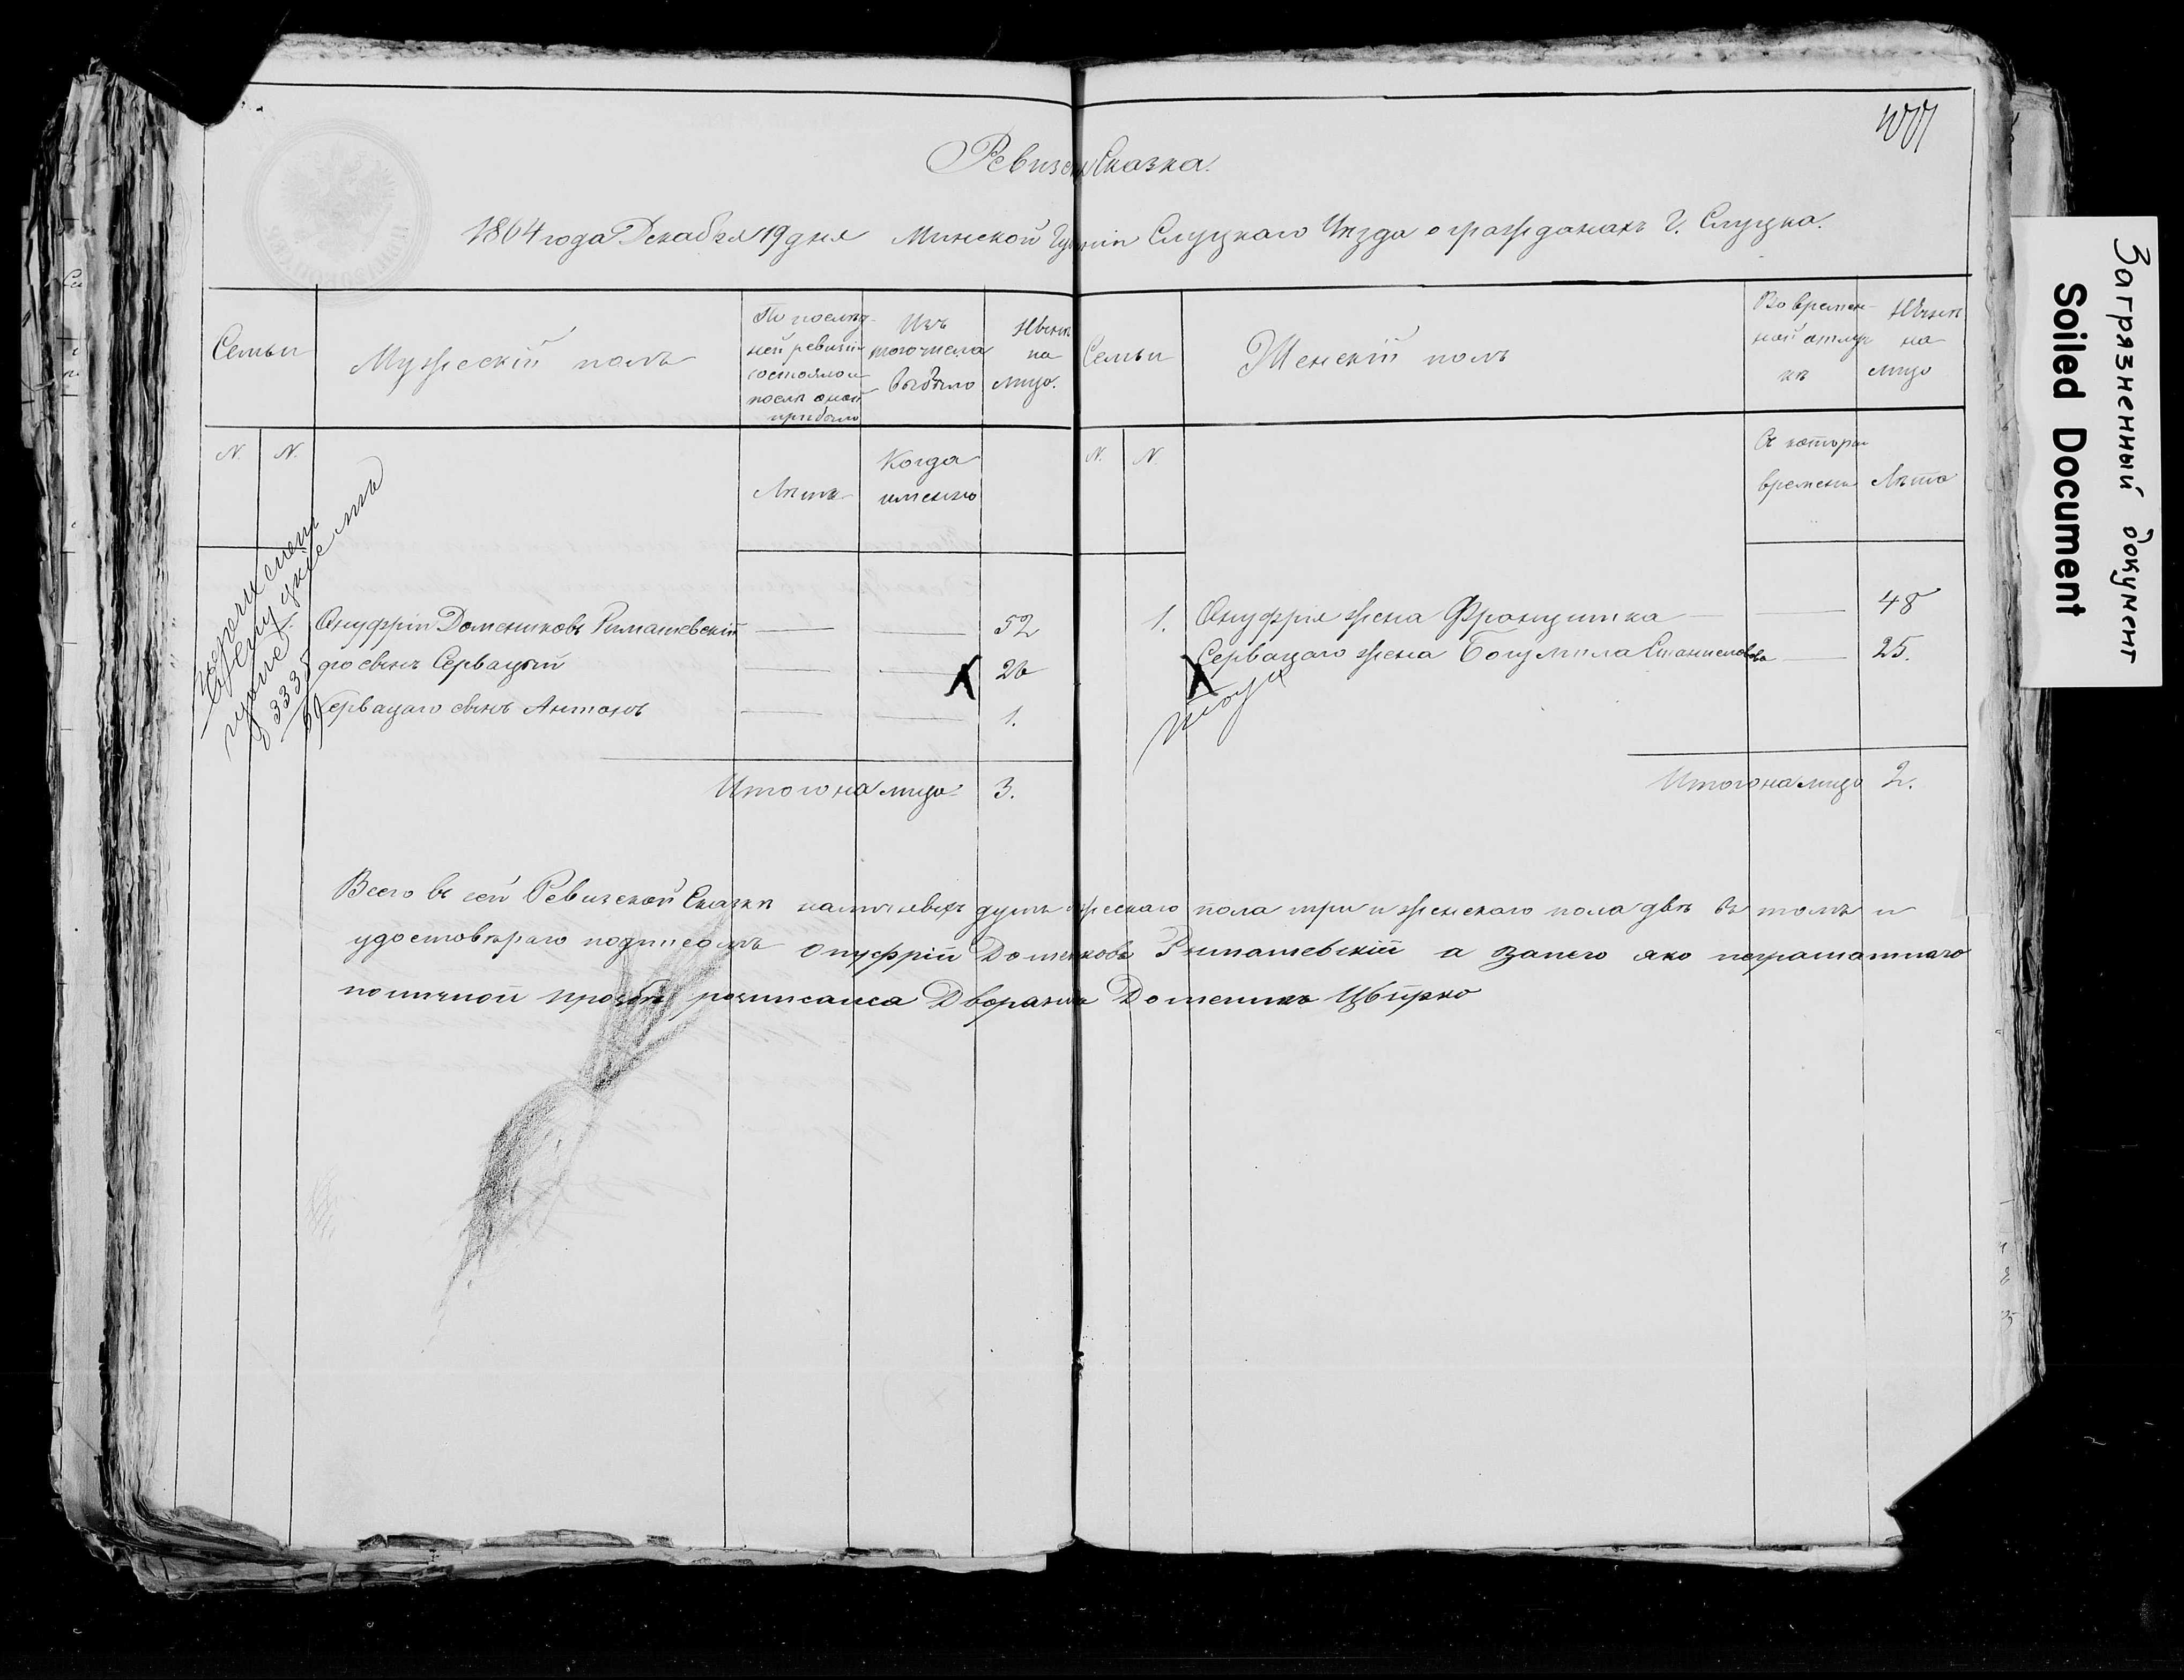 Ревизск. Сказка.
1864 года Декабря 19 дня Минской Губерніи Слуцкаго Уѣзда о гражданахъ г. Слуцка.
Семьи
Мужескій полъ
По послѣд-
ней ревизіи
состояло и
послѣ оной
прибыло
Изъ
того числа
выбыло
Нынѣ
на
лицо.
Семьи
Женскій полъ
Во времен-
ной отлуч
кѣ
Нынѣ
на
лицо
N.
N.
Лѣтъ
Когда
именно
N.
N.
Съ котори
времени
Лѣта
3335
Ануфрій Домениковъ Рымашевскій
52
1. Ануфрія жена Францишка
48
его сынъ Сервацый
26
Сервацаго жена Богумила Станиславова
25.
Сервацаго сынъ Антонъ
1.
Итого на лицо
3.
Итого на лицо
2.
Всего въ сей Ревизской Сказкѣ наличныхъ душъ мужескаго пола три и женскаго пола двѣ въ томъ и
удостовѣраю подписомъ Онуфрій Домениковъ Рымашевскій а занего яко неграматнаго
поличной прозбѣ розписался Дворянинъ Доменикъ Цвирко
Загрязненный документ
Soiled Document